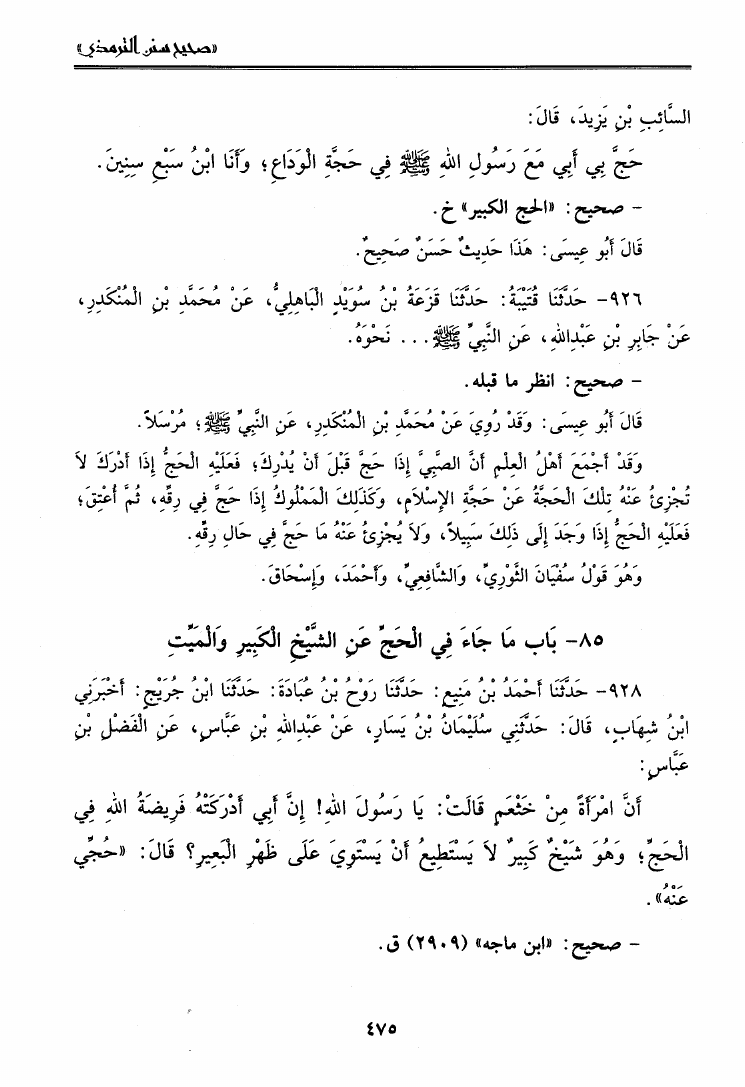 «صحيح سنن الترمذي»
السَّائِبِ بْنِ يَزِيدَ، قَالَ:
حَجَّ بِي أَبِي مَعَ رَسُولِ اللهِ ﷺ فِي حَجَّةِ الْوَدَاعِ؛ وَأَنَا ابْنُ سَبْعِ سِنِينَ.
- صحيح: «الحج الكبير» خ.
قَالَ أَبُو عِيسَى: هَذَا حَدِيثٌ حَسَنٌ صَحِيحٌ.
٩٢٦- حَدَّثَنَا قُتَيْبَةُ: حَدَّثَنَا قَزَعَةُ بْنُ سُوَيْدٍ الْبَاهِلِيُّ، عَنْ مُحَمَّدِ بْنِ الْمُنْكَدِرِ،
عَنْ جَابِرِ بْنِ عَبْدِاللهِ، عَنِ النَّبِيِّ ﷺ... نَحْوَهُ.
- صحيح: انظر ما قبله.
قَالَ أَبُو عِيسَى: وَقَدْ رُوِيَ عَنْ مُحَمَّدِ بْنِ الْمُنْكَدِرِ، عَنِ النَّبِيِّ ﷺ؛ مُرْسَلاً.
وَقَدْ أَجْمَعَ أَهْلُ الْعِلْمِ أَنَّ الصَّبِيَّ إِذَا حَجَّ قَبْلَ أَنْ يُدْرِكَ؛ فَعَلَيْهِ الْحَجُّ إِذَا أَدْرَكَ لاَ
تُجْزِئُ عَنْهُ تِلْكَ الْحَجَّةُ عَنْ حَجَّةِ الإِسْلاَمِ، وَكَذَلِكَ الْمَمْلُوكُ إِذَا حَجَّ فِي رِقِّهِ، ثُمَّ أُعْتِقَ؛
فَعَلَيْهِ الْحَجُّ إِذَا وَجَدَ إِلَى ذَلِكَ سَبِيلاً، وَلاَ يُجْزِئُ عَنْهُ مَا حَجَّ فِي حَالِ رِقِّهِ.
وَهُوَ قَوْلُ سُفْيَانَ الثَّوْرِيِّ، وَالشَّافِعِيِّ، وَأَحْمَدَ، وَإِسْحَاقَ.
٨٥- بَاب مَا جَاءَ فِي الْحَجِّ عَنِ الشَّيْخِ الْكَبِيرِ وَالْمَيِّتِ
٩٢٨- حَدَّثَنَا أَحْمَدُ بْنُ مَنِيعٍ: حَدَّثَنَا رَوْحُ بْنُ عُبَادَةَ: حَدَّثَنَا ابْنُ جُرَيْجٍ: أَخْبَرَنِي
ابْنُ شِهَابٍ، قَالَ: حَدَّثَنِي سُلَيْمَانُ بْنُ يَسَارٍ، عَنْ عَبْدِاللهِ بْنِ عَبَّاسٍ، عَنِ الْفَضْلِ بْنِ
عَبَّاسٍ:
أَنَّ امْرَأَةً مِنْ خَثْعَمٍ قَالَتْ: يَا رَسُولَ اللهِ! إِنَّ أَبِي أَدْرَكَتْهُ فَرِيضَةُ اللهِ فِي
الْحَجِّ؛ وَهُوَ شَيْخٌ كَبِيرٌ لاَ يَسْتَطِيعُ أَنْ يَسْتَوِيَ عَلَى ظَهْرِ الْبَعِيرِ؟ قَالَ: «حُجِّي
عَنْهُ».
- صحيح: «ابن ماجه» (٢٩٠٩) ق.
٤٧٥